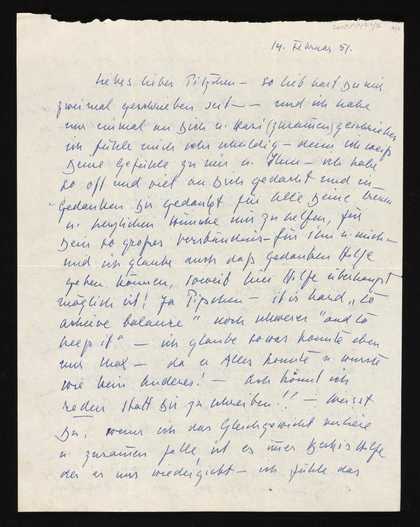 14. Februar 51.
liebes liebes Pipschen – so lieb hast Du mir
zweimal geschrieben seit – – und ich habe
nur einmal an Dich u. Hari (zusammen) geschrieben
ich fühle mich sehr schuldig – denn ich weiss
Deine Gefühle zu mir u. Ihm – ich habe
so oft und viel an Dich gedacht und in
Gedanken Dir gedankt für alle Deine Treue
u. herzlichen Wünsche mir zu helfen, für
Dein so grosses Verständnis – für Ihn u. mich –
und ich glaube auch dass Gedanken Hilfe
geben können, soweit hier Hilfe überhaupt
möglich ist! Ja Pipschen – it is hard „to
achieve balance" noch schwerer "and to
keep it" – ich glaube so was konnte eben
nur Max – da er Alles konnte u. wusste
wie kein Anderer! – Ach könnt ich
reden statt Dir zu schreiben!! – weisst
Du, wenn ich das Gleichgewicht verliere
u. zusammen falle, ist es immer Hilfe
der es mir wiedergiebt – ich fühle das